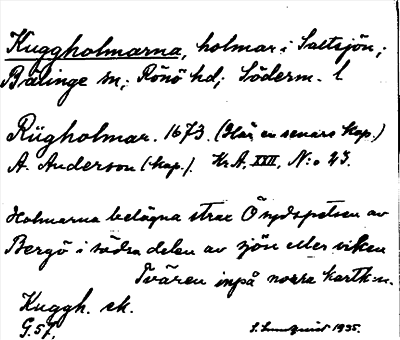 Kuggholmarna, holmar i Saltsjön;
Bälinge sn; Rönö hd; Söderm. l
Rügholmar. 1673. (Här en senare kop.)
A. Anderson (kop.). Kr.A. XXII, N:o 23.
Holmarna belägna strax Ö sydspetsen av
Bergö i södra delen av sjön eller viken
Tvären inpå norra kartk:n.
Kuggh. ek.
G. 57. S. Lundquist 1935.